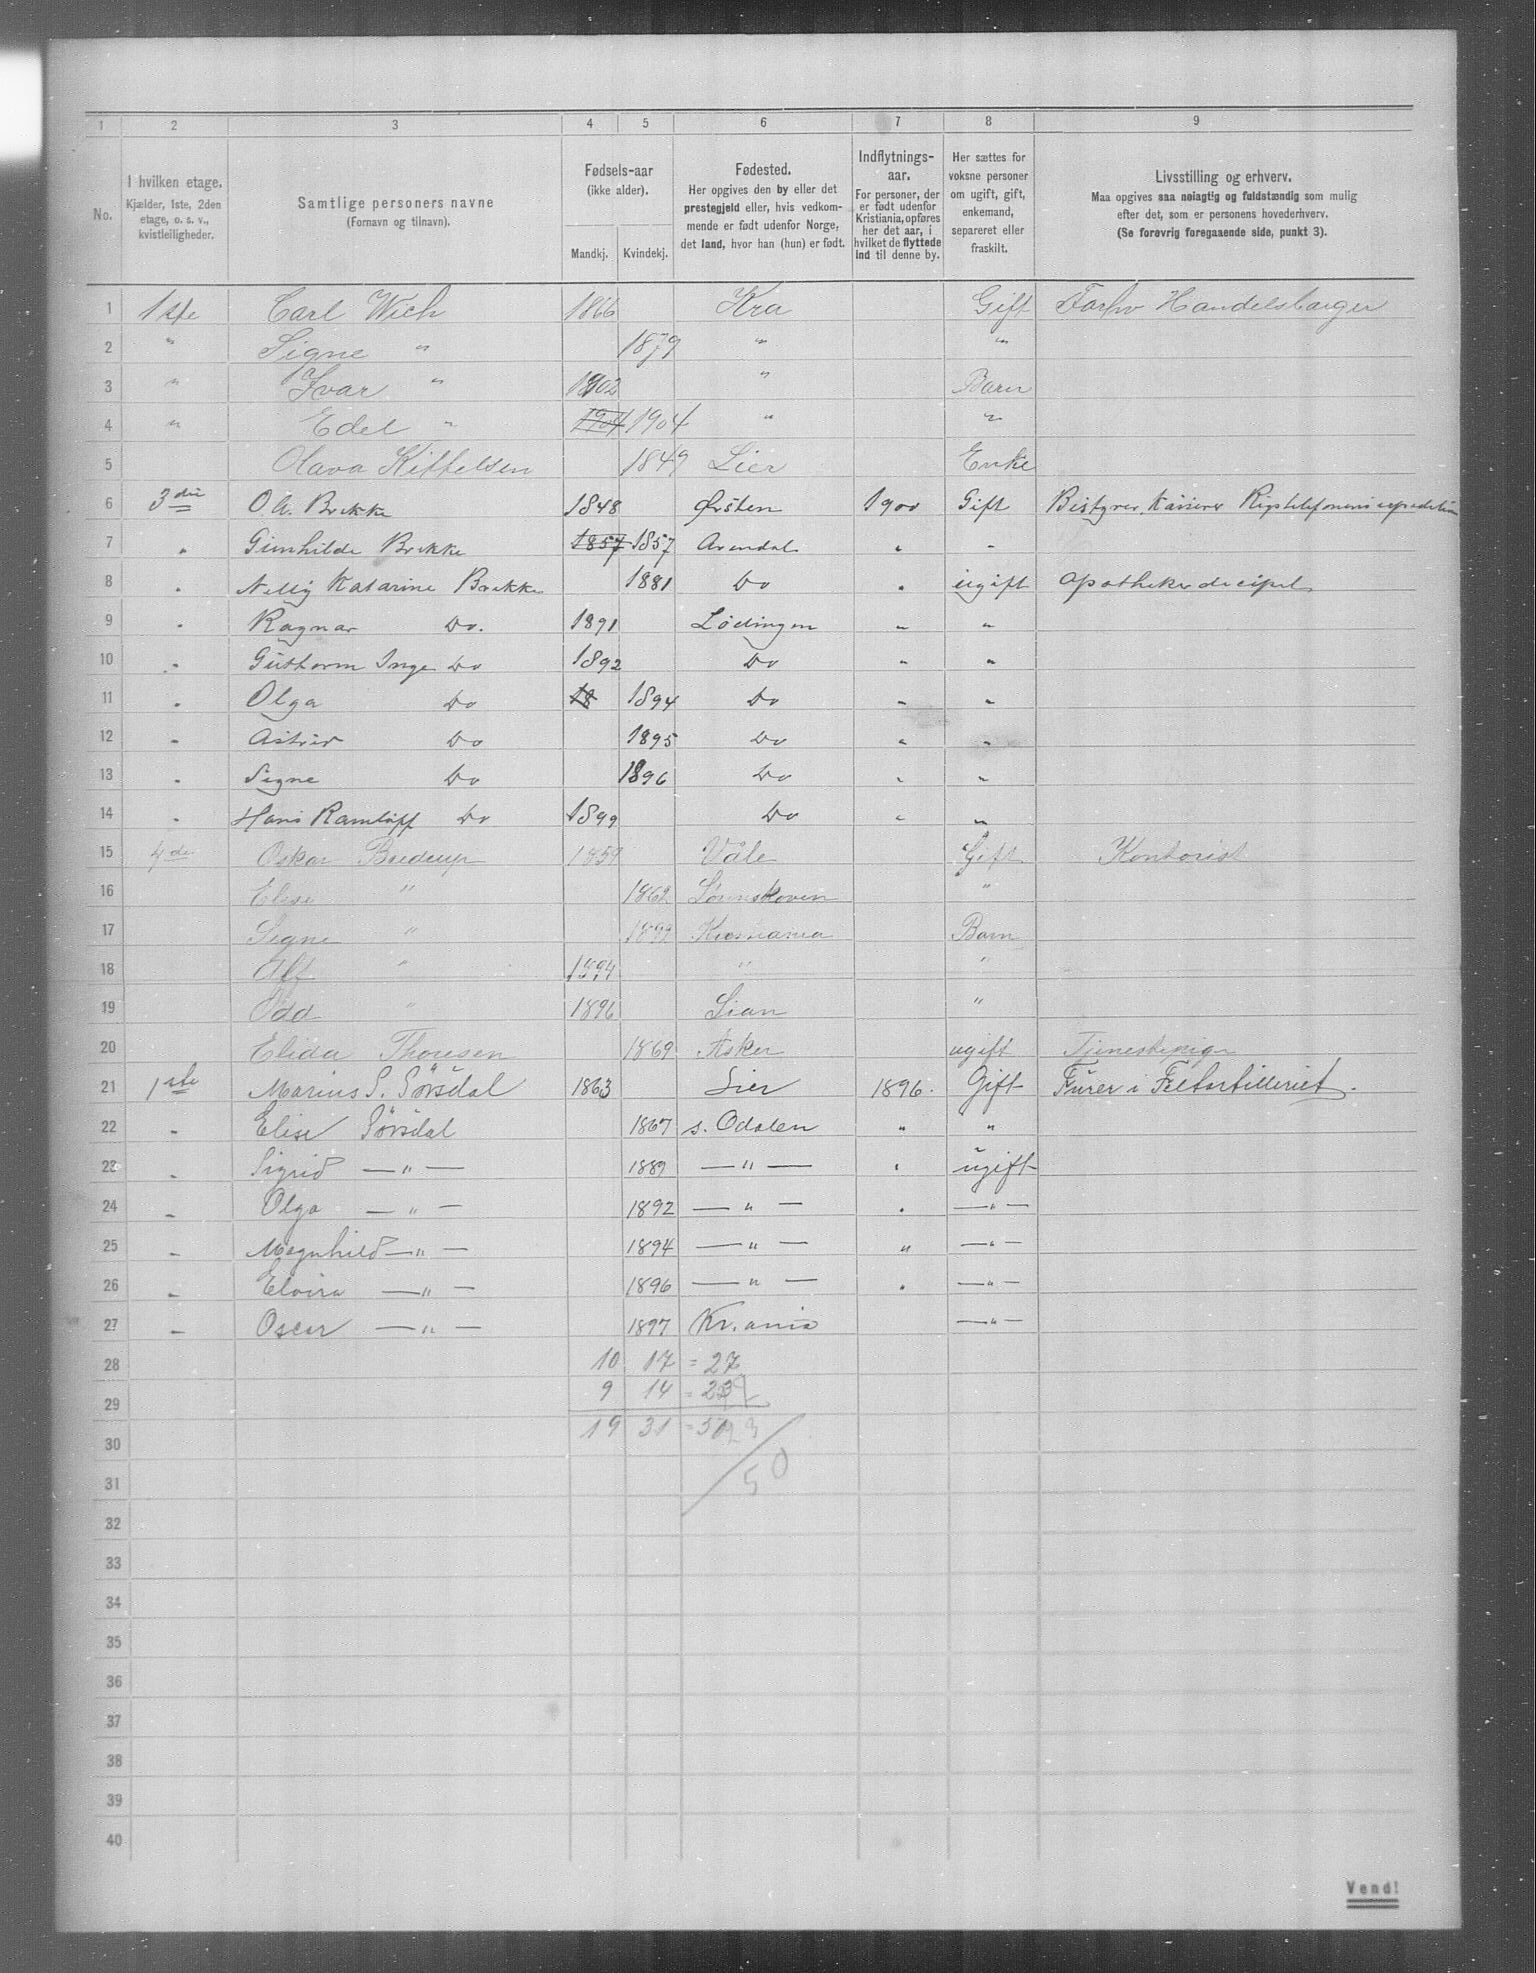 1 2 3 4 5 6 7 8 9
No. I hvilken etage. Kjælder, 1ste, 2den etage, o. s. v., kvistleiligheder. Samtlige personers navne (Fornavn og tilnavn). Fødsels-aar (ikke alder). Mandkj. Kvindekj. Fødested. Her opgives den by eller det prestegjeld eller, hvis vedkommende er født udenfor Norge, det land, hvor han (hun) er født. Indflytnings-aar. For personer, der er født udenfor Kristiania, opføres her det aar, i hvilket de flyttede ind til denne by. Her sættes for voksne personer om ugift, gift, enkemand, separeret eller fraskilt. Livsstilling og erhverv. Maa opgives saa nøiagtig og fuldstændig som mulig efter det, som er personens hovederhverv. (Se forøvrig foregaaende side, punkt 3).
1 1ste Carl Wich 1866 Kra Gift Forhv Handelsborger
2 " Signe " 1879 " "
3 " Ivar " 1902 " Barn
4 " Edel " 1904 1904 " "
5 Olava Kittelsen 1849 Lier Enke
6 3die O. A. Brekke 1848 Ørsten 1900 Gift Bestyrer, Kasserer Rigstelefonens expedition
7 " Gunhilde Brekke 1857 1857 Arendal " "
8 " Nelly Katarine Brekke 1881 Do " ugift Apothekerdicipel
9 " Ragnar Do. 1891 Lødingen " "
10 " Guthorm Inge Do 1892 Do " "
11 " Olga Do 18 1894 Do " "
12 " Astrid Do 1895 Do " "
13 " Signe Do 1896 Do " "
14 " Hans Do 1899 Do " "
15 4de Oskar Bredrup 1859 Våle Gift Kontorist
16 Elise " 1862 "
17 Signe " Kristiania Barn
18 Alf " 1894 " "
19 Odd " 1896 Lian "
20 Elida Thoresen 1869 Asker ugift Tjenestepige
21 1ste Marius S. Sørsdal 1863 Lier 1896. Gift Furer i Feltartilleriet.
22 " Elise Sørsdal 1867 s. Odalen " "
23 " Sigrid — " — 1889 — " — " ugift
24 " Olga — " — 1892 — " — " — " —
25 " Magnhild — " — 1894 — " — " — " —
26 " Elvira — " — 1896 — " — " — " —
27 " Oscar — " — 1897 Kr.ania — " —
28 10 17 = 27
29 9 14 = 23
30 19 31 = 50
31 50
32
33
34
35
36
37
38
39
40
Vend!